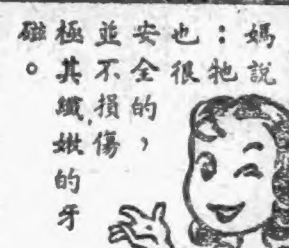 媽說
：牠
也很
安全的，
並不損傷
極其纖嫩的牙
磁。